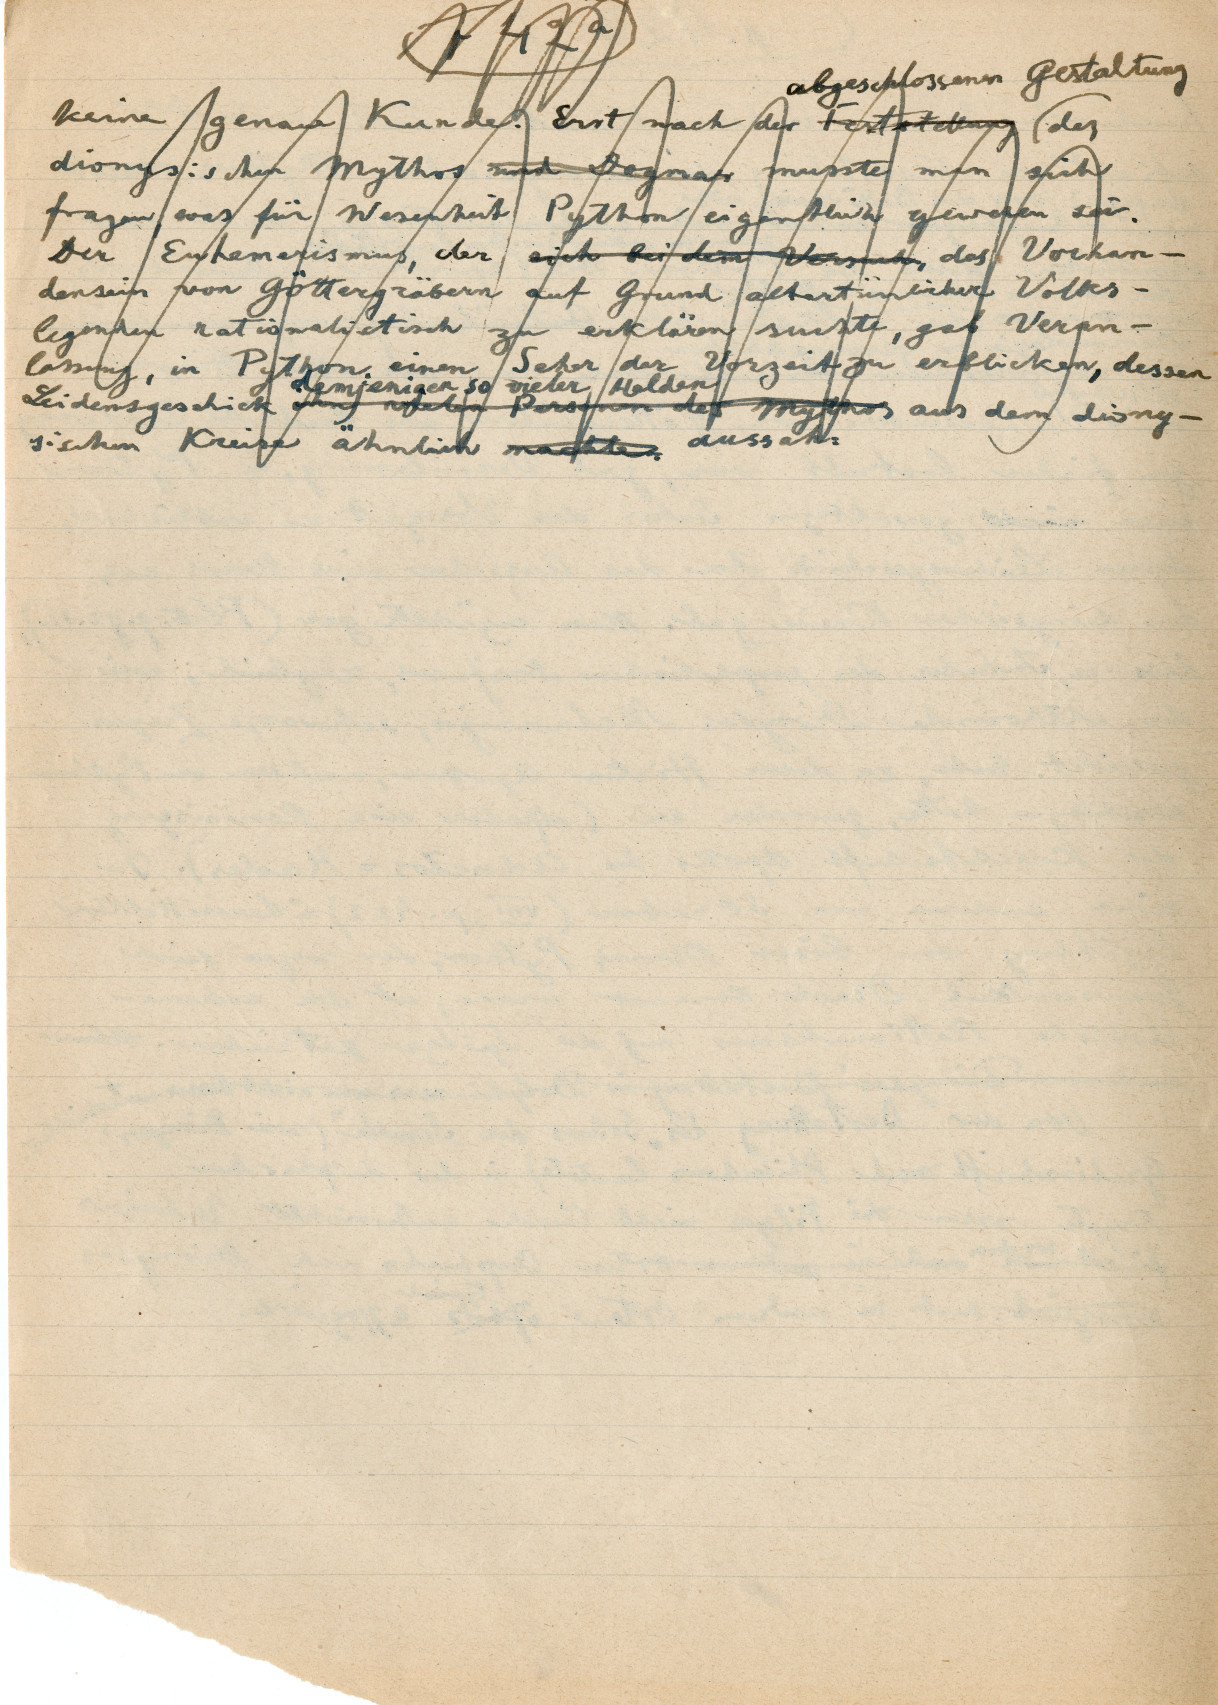 422a
abgeschlossenen Gestaltung
keine genaue Kunde. Erst nach der Feststellung des
dionysischen Mythos und Dogmas musste man sich
fragen, was für Wesenheit Python eigentlich gewesen sei.
Der Euhemerismus, der sich bei dem Versuch, das Vorhan-
densein von Göttergräbern auf Grund altertümlicher Volks-
legenden rationalistisch zu erklären suchte, gab Veran-
lassung, in Python einen Seher der Vorzeit zu erblicken, dessen
demjenigen so vieler Helden
Leidensgeschick Personen des Mythos aus dem diony-
sischen Kreise ähnlich machte. aussah.